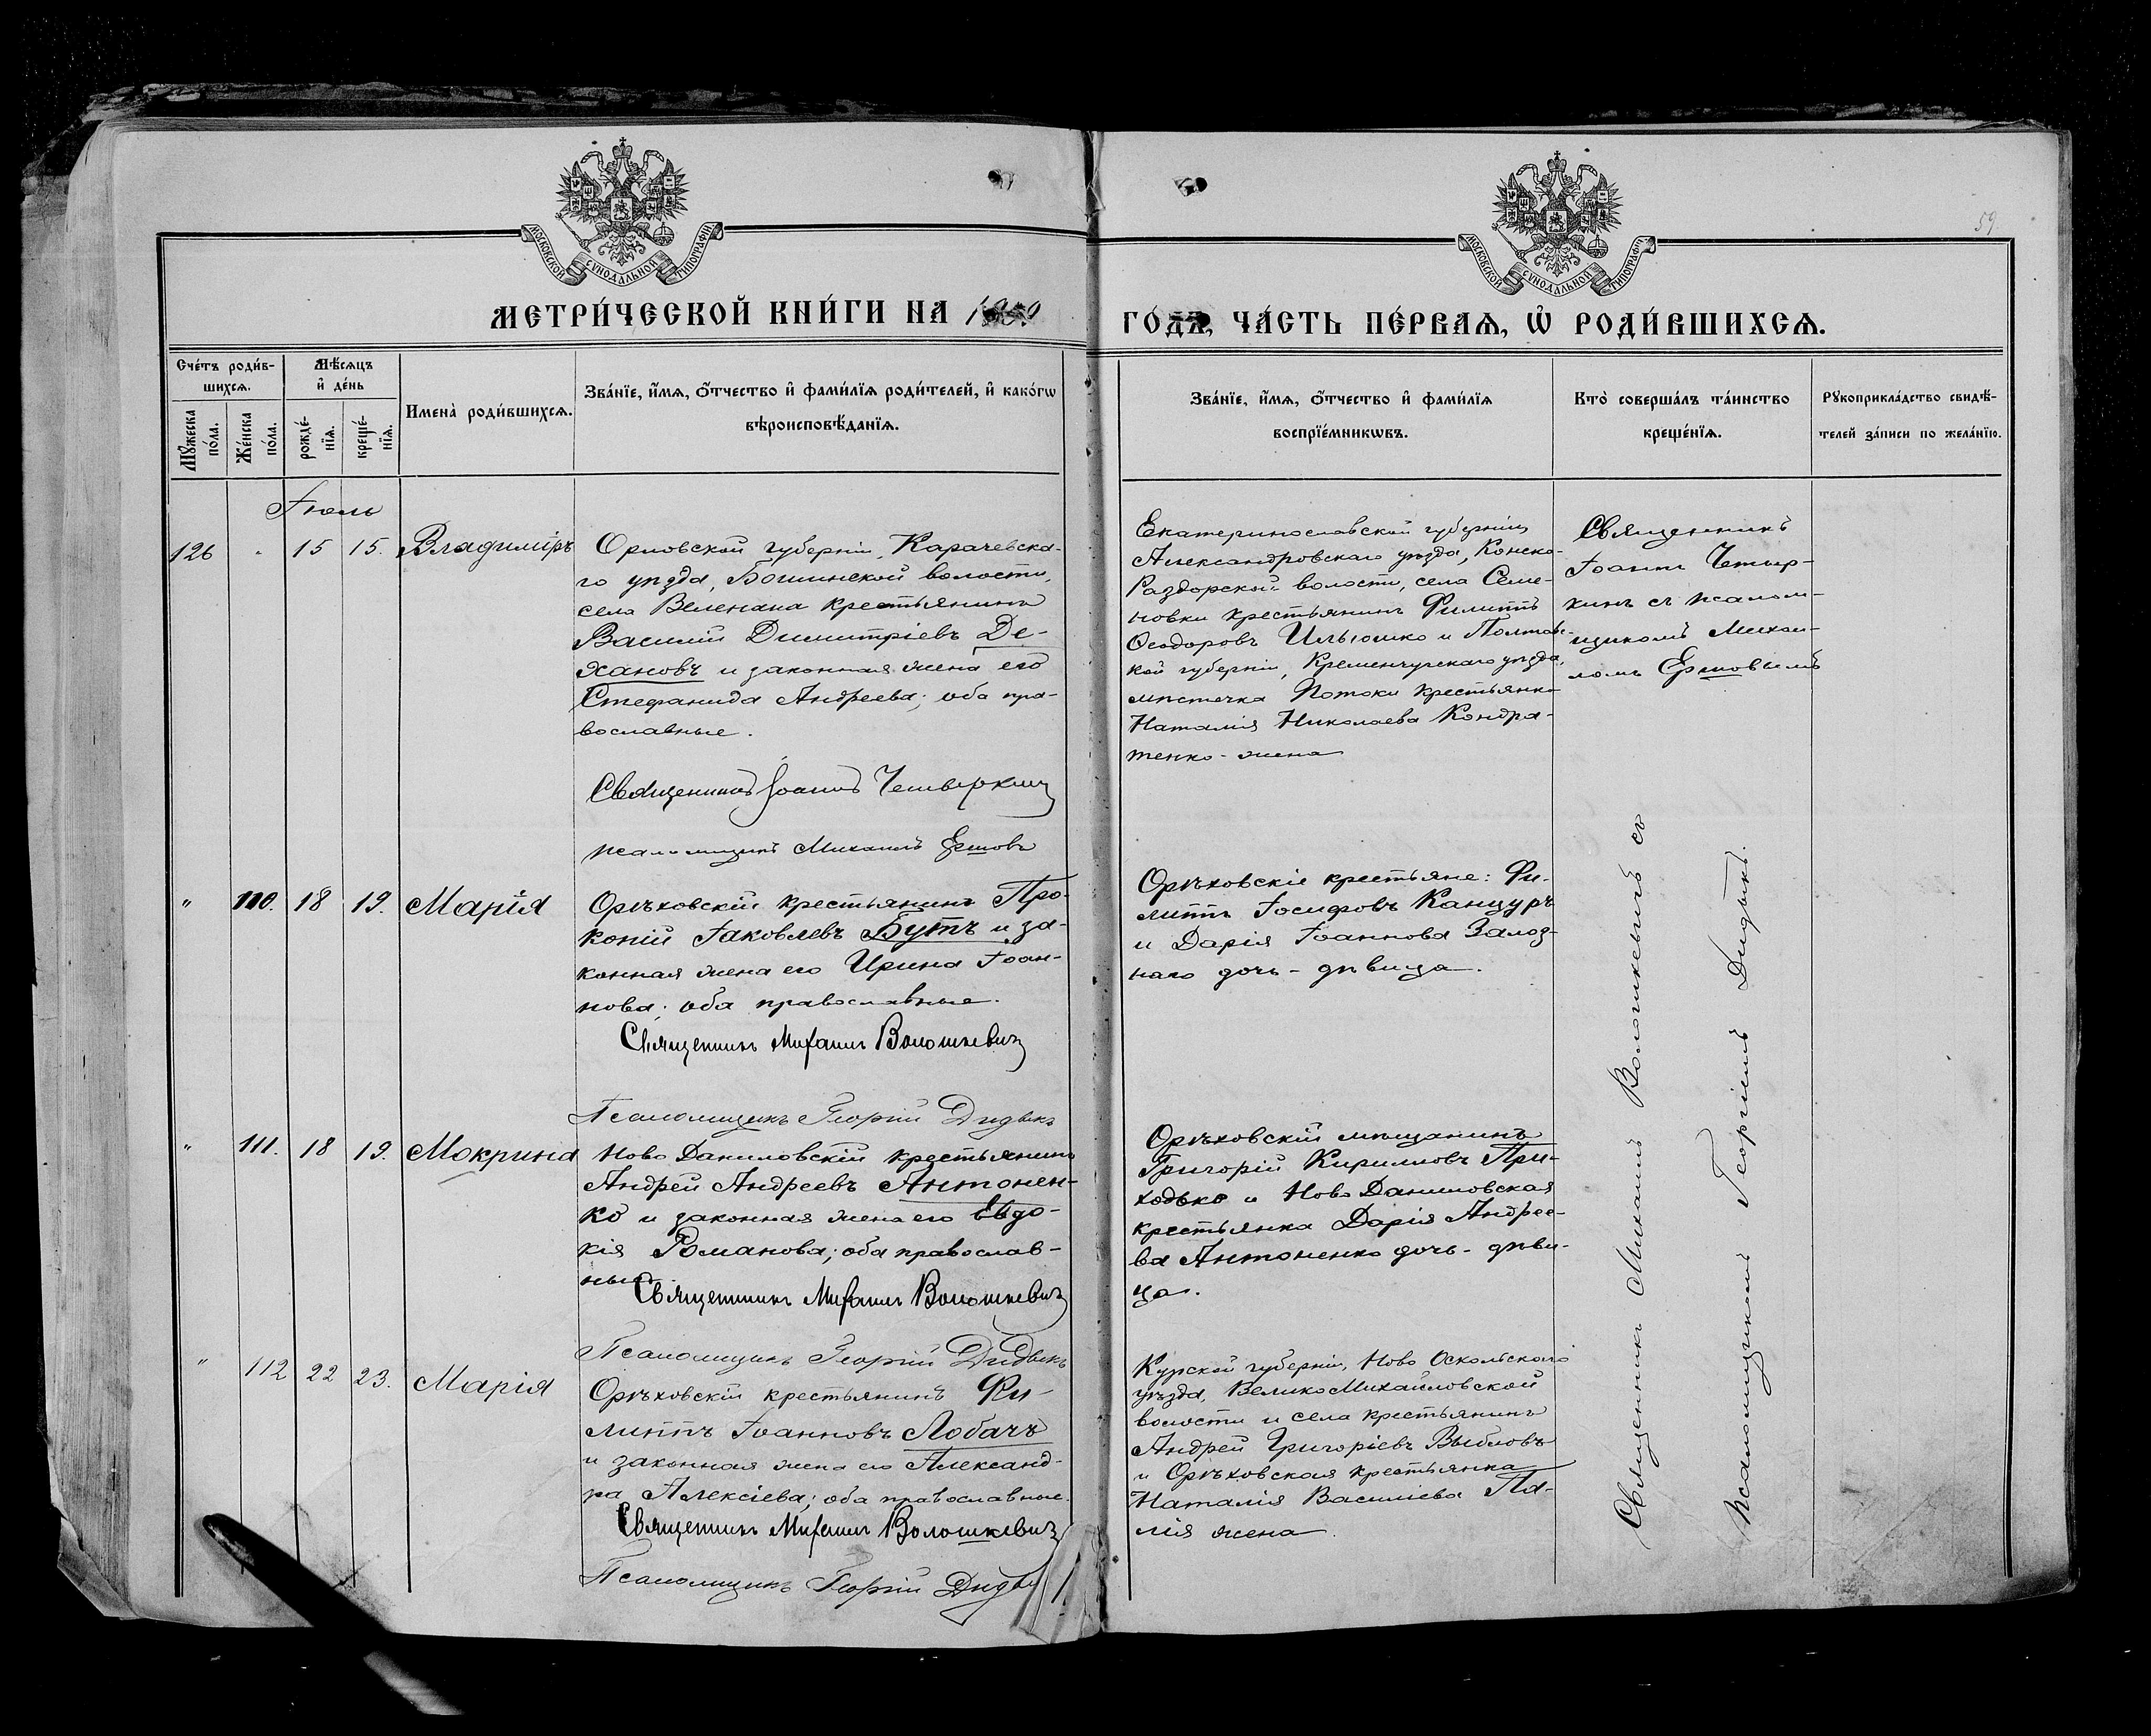 59
МОСКОВСКОЙ СѴНОДАЛЬНОЙ ТИПОГРАФІИ
МОСКОВСКОЙ СѴНОДАЛЬНОЙ ТИПОГРАФІИ
МЕТРИ́ЧЕСКОЙ КНИ́ГИ НА
ГО́ДЪ, ЧА́СТЬ ПЕ́РВАѦ, Ѡ҆ РОДИ́ВШИХСѦ.
Сче́тъ роди́в-
шихсѧ.
Мꙋ́жеска по́ла.
Же́нска по́ла.
Мѣ́сѧцъ
и҆ де́нь
рожде́-
нїѧ.
креще́-
нїѧ.
Имена̀ роди́вшихсѧ.
Зва́нїе, и҆́мѧ, ѻ҆́тчество и҆ фами́лїѧ роди́телей, и҆ како́гѡ
вѣроисповѣ́данїѧ.
Зва́нїе, и҆́мѧ, ѻ҆́тчество и҆ фами́лїѧ
воспрїе́мникѡвъ.
Кто̀ соверша́лъ та́инство
креще́нїѧ.
Рꙋкоприкла́дство свидѣ́-
телей за́писи по жела́нїю.
Іюль
126 " 15 15. Владиміръ
Орловской губерніи, Карачевска-
го уѣзда, Бошинской волости,
села крестьянинъ
Василій Димитріевъ Де-
хановъ и законная жена его
Стефанида Андреева; оба пра-
вославные.
Священникъ Іоаннъ Четыркинъ
псаломщикъ Михаилъ Ершовъ
Екатеринославской губерніи,
Александровскаго уѣзда, Конско-
Раздорской волости, села Семе-
новки крестьянинъ Филиппъ
Ѳеодоровъ Ильюшко и Полтавс-
кой губерніи, Кременчугскаго уѣзда,
мѣстечка Потоки крестьянка
Наталія Николаева Кондра-
тенко - жена
Священникъ
Іоаннъ Четыр-
кинъ съ псалом-
щикомъ Михаи-
ломъ Ершовымъ
" 110. 18 19. Марія
Орѣховскій крестьянинъ Про-
копій Іаковлевъ Бутъ и за-
конная жена его Ирина Іоан-
нова; оба православные.
Священникъ Михаилъ Волошкевичъ
Псаломщикъ Георгій Дидыкъ
Орѣховскіе крестьяне: Фи-
липпъ Іосифовъ Канцуръ
и Дарія Іоаннова Залоз-
наго дочь - дѣвица.
" 111. 18 19. Мокрина
Ново Даниловскій крестьянинъ
Андрей Андреевъ Антонен-
ко и законная жена его Евдо-
кія Романова; оба православ-
ные.
Священникъ Михаилъ Волошкевичъ
Псаломщикъ Георгій Дидыкъ
Орѣховскій мѣщанинъ
Григорій Кирилловъ При-
ходько и Ново Даниловская
крестьянка Дарія Андрее-
ва Антоненко дочь - дѣви-
ца.
" 112 22 23. Марія
Орѣховскій крестьянинъ Фи-
липпъ Іоанновъ Лобачъ
и законная жена его Александ-
ра Алексіева; оба православные.
Священникъ Михаилъ Волошкевичъ
Псаломщикъ Георгій Дидыкъ
Курской губерніи, Ново Оскольскаго
уѣзда, Велико Михайловской
волости и села крестьянинъ
Андрей Григоріевъ
и Орѣховская крестьянка
Наталія Василіева Па-
лія жена.
Священникъ Михаилъ Волошкевичъ съ
псаломщикомъ Георгіемъ Дидыкъ.